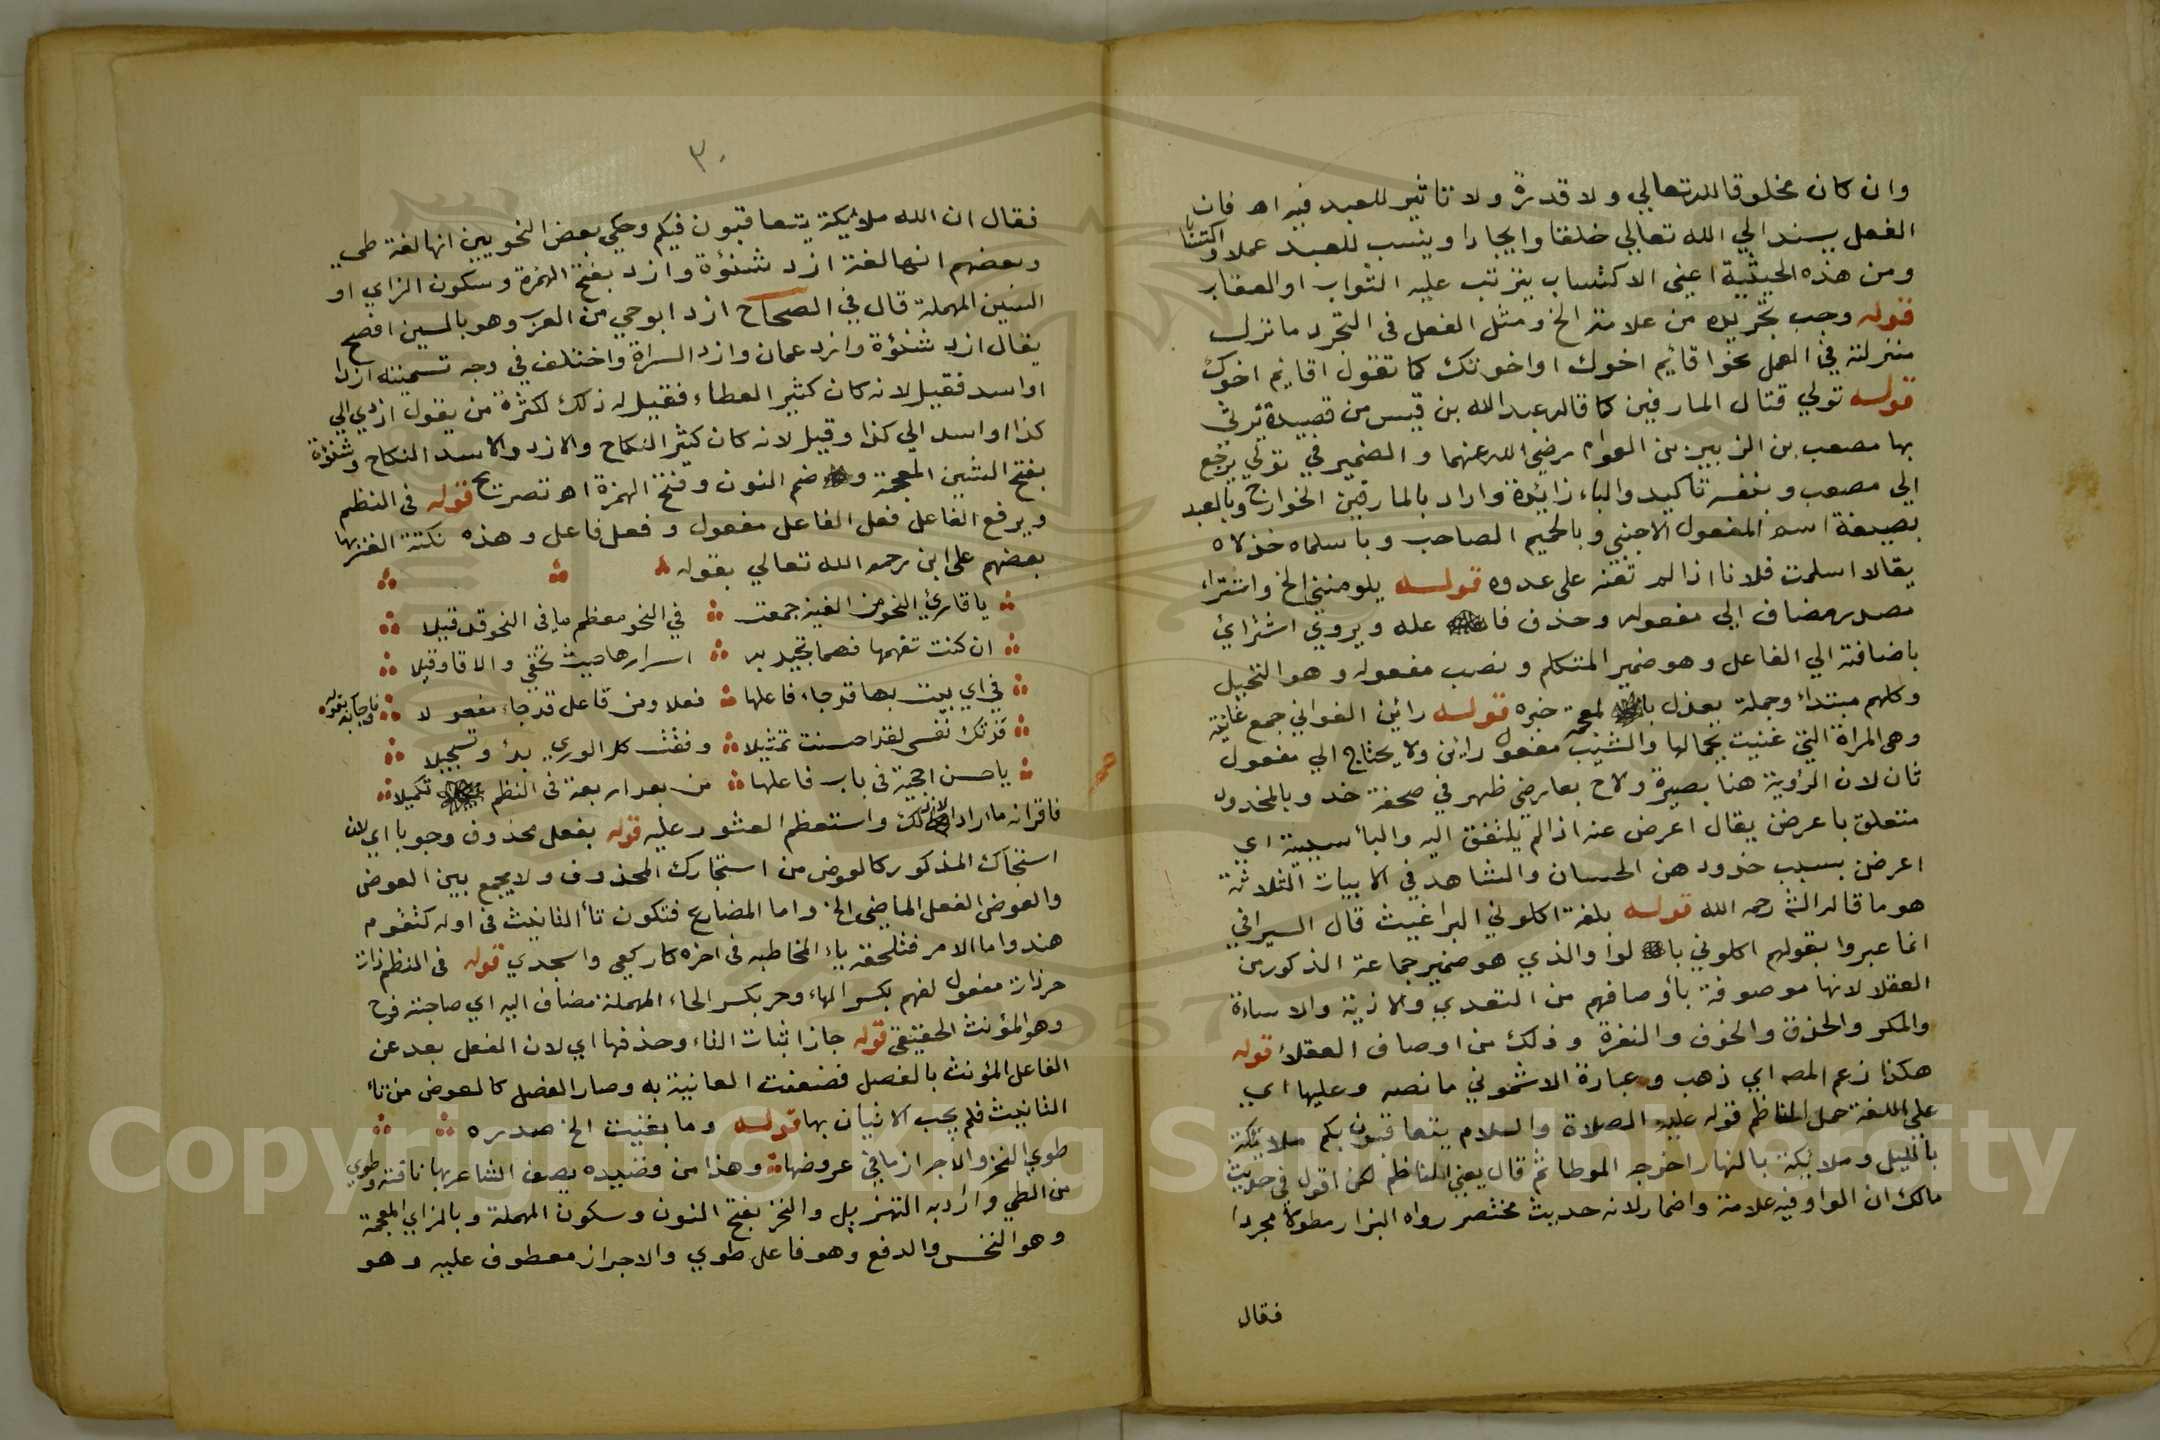 وان كان مخلوقا لله تعالي ولا قدرة ولا تاثير للعبد فيه اه فان
الفعل يسند الي الله تعالي خلقا وايجادا وينسب للعبد عملا واكتسابا
ومن هذه الحيثية اعني الاكتساب يترتب عليه الثواب او العقاب
قوله وجب تجريده من علامة الخ ومثل الفعل في التجرد ما نزل
منزلته في العمل نحو اقايم اخوك او اخوتك كما تقول اقايم اخوك
قوله تولي قتال المارقين كما قاله عبد الله بن قيس من قصيدة يرثي
بها مصعب بن الزبير بن العوام رضي الله عنهما والضمير في تولي يرجع
الي مصعب وبنفسه تاكيد والباء زائدة واراد بالمارقين الخوارج وبالبعد
بصيغة اسم المفعول الاجنبي وبالحميم الصاحب وباسلماه خذلاه
يقال اسلمت فلانا اذا لم تعنه علي عدوه قوله يلومنني الخ واشتراء
مصدر مضاف الي مفعوله وحذف فا عله ويروي اشترائي
باضافته الي الفاعل وهو ضمير المتكلم ونصب مفعوله وهو النخيل
وكلهم مبتداء وجملة يعذل با لمعجمة خبره قوله راين الغواني جمع غانية
وهي المراة التي غنيت بجمالها والشيب مفعول راين ولا يحتاج الي مفعول
ثان لان الرؤية هنا بصيرة ولاح بعارضي ظهر في صحفة خد وبالخدود
متعلق باعرض يقال اعرض عنه اذا لم يلتفت اليه والبأ سببية اي
اعرض بسبب خدودهن الحسان والشاهد في الابيات الثلاثة
هو ما قاله الش رحمه الله قوله بلغة اكلوني البراغيث قال السيرافي
انما عبروا بقولهم اكلوني با لوا والذي هو ضمير جماعة الذكور من
العقلا لانها موصوفة باوصافهم من التعدي والاذية والاساءة
والمكر والحذق والخوف والنفرة وذلك من اوصاف العقلا قوله
هكذا زعم المصه اي ذهب وعبارة الاشموني ما نصه وعليها اي
علي اللغة حمل الناظم قوله عليه الصلاة والسلام يتعاقبون بكم ملائكة
بالليل وملايكة بالنهار اخرجه الموطا ثم قال يعني الناظم لكن اقول في حديث
مالك ان الواو فيه علامة واضمار لانه حديث مختصر رواه البزار مطولا مجردا
فقال
٣٠
فقال ان الله ملائيكة يتعاقبون فيكم وحكي بعض النحويين انها لغة طي
وبعضهم انها لغة ازد شنؤة وازد بفتح الهمزة وسكون الزاي او
السين المهملة قال في الصحاح ازد ابوحي من العرب وهو بالسين افصح
يقال ازد شنؤة وازد عمان وازد السراة واختلف في وجه تسميته ازدا
او اسد فقيل لانه كان كثير العطاء فقيل له ذلك لكثرة من يقول ازدي الي
كذا او اسد الي كذا وقيل لانه كان كثير النكاح والازد والاسد النكاح وشنؤة
بفتح الشين المعجمة و ضم النون وفتح الهمزة اه تصريح قوله في النظم
ويرفع الفاعل فعل الفاعل مفعول وفعل فاعل وهذه نكتة الغز بها
بعضهم علي ابن رحمه الله تعالي بقوله
يا قارئ النحو من الفية جمعت في النحو معظم ما في النحو قد قيلا
ان كنت تفهمها فهما تجيد به اسرارها حيث تخفي والا قاوقيلا
في اي بيت بها قد جاء فاعلها فعلا ومن فاعل قد جاء مفعولا واجابه بقوله
فدتك نفسي لغزا صنت تمثيلا وفقت كل الوري بدأ وتسجيلا
يا حسن احجية في باب فاعلها من بعد اربعة في النظم تكميلا
فاقرانه ما اراد ذلك واستعظم العثور عليه قوله بفعل محذوف وجوبا اي لان
استجارك المذكور كالعوض من استجارك المحذوف ولا يجمع بين العوض
والعوض الفعل الماضي الخ واما المضارع فتكون تأ التانيث في اوله كتقوم
هند واما الامر فتلحقه ياء المخاطبه في اخره كاركعي واسجدي قوله في النظم ذات
حر ذات مفعول لفهم بكسر الهاء وحر بكسر الحاء المهملة مضاف اليه اي صاحبة فرج
وهو المؤنث الحقيقي قوله جاز اثبات التاء وحذفها اي لان الفعل بعد عن
الفاعل المؤنث بالفصل فضعفت العانية به وصار الفصل كالعوض من تأ
التانيث فلم يجب الاتيان بها قوله وما بقيت الخ صدره
طوي النحز والاجراز ما في عروضها وهذا من قصيده يصف الشاعر بها ناقته وطوي
من الطي واراد به التهزيل والنحز بفتح النون وسكون المهملة وبالزاي المعجمة
وهو النخس والدفع وهو فاعل طوي والاجراز معطوف عليه وهو